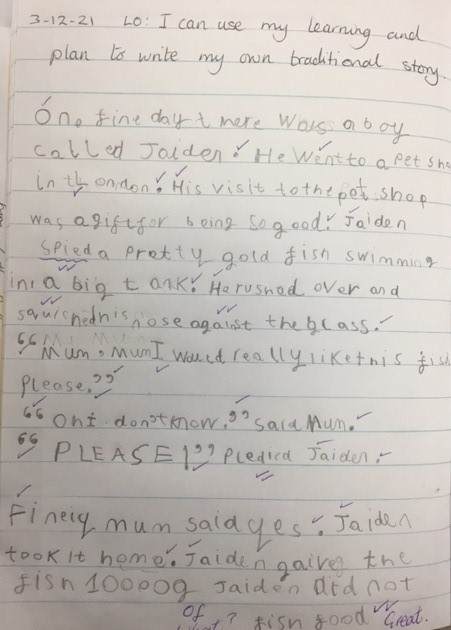 3-12-21 LO: I can use my learning and
plan to write my own traditional story.
On fine day there was a boy
called Jaiden. He went to a pet sho
in London. His visit to the pet shop
was a gift for being so good. Jaiden
spied a pretty gold fish swimming
in a big tank. He rushed over and
squished his nose against the glass.
"Mum, Mum I would really like this fish
please."
"Oh I don't know," said Mum.
"PLEASE!" pledied Jaiden.
Finely mum said yes. Jaiden
took it home. Jaiden gaive the
fish 10000g Jaiden did not
of
? fish food Great.